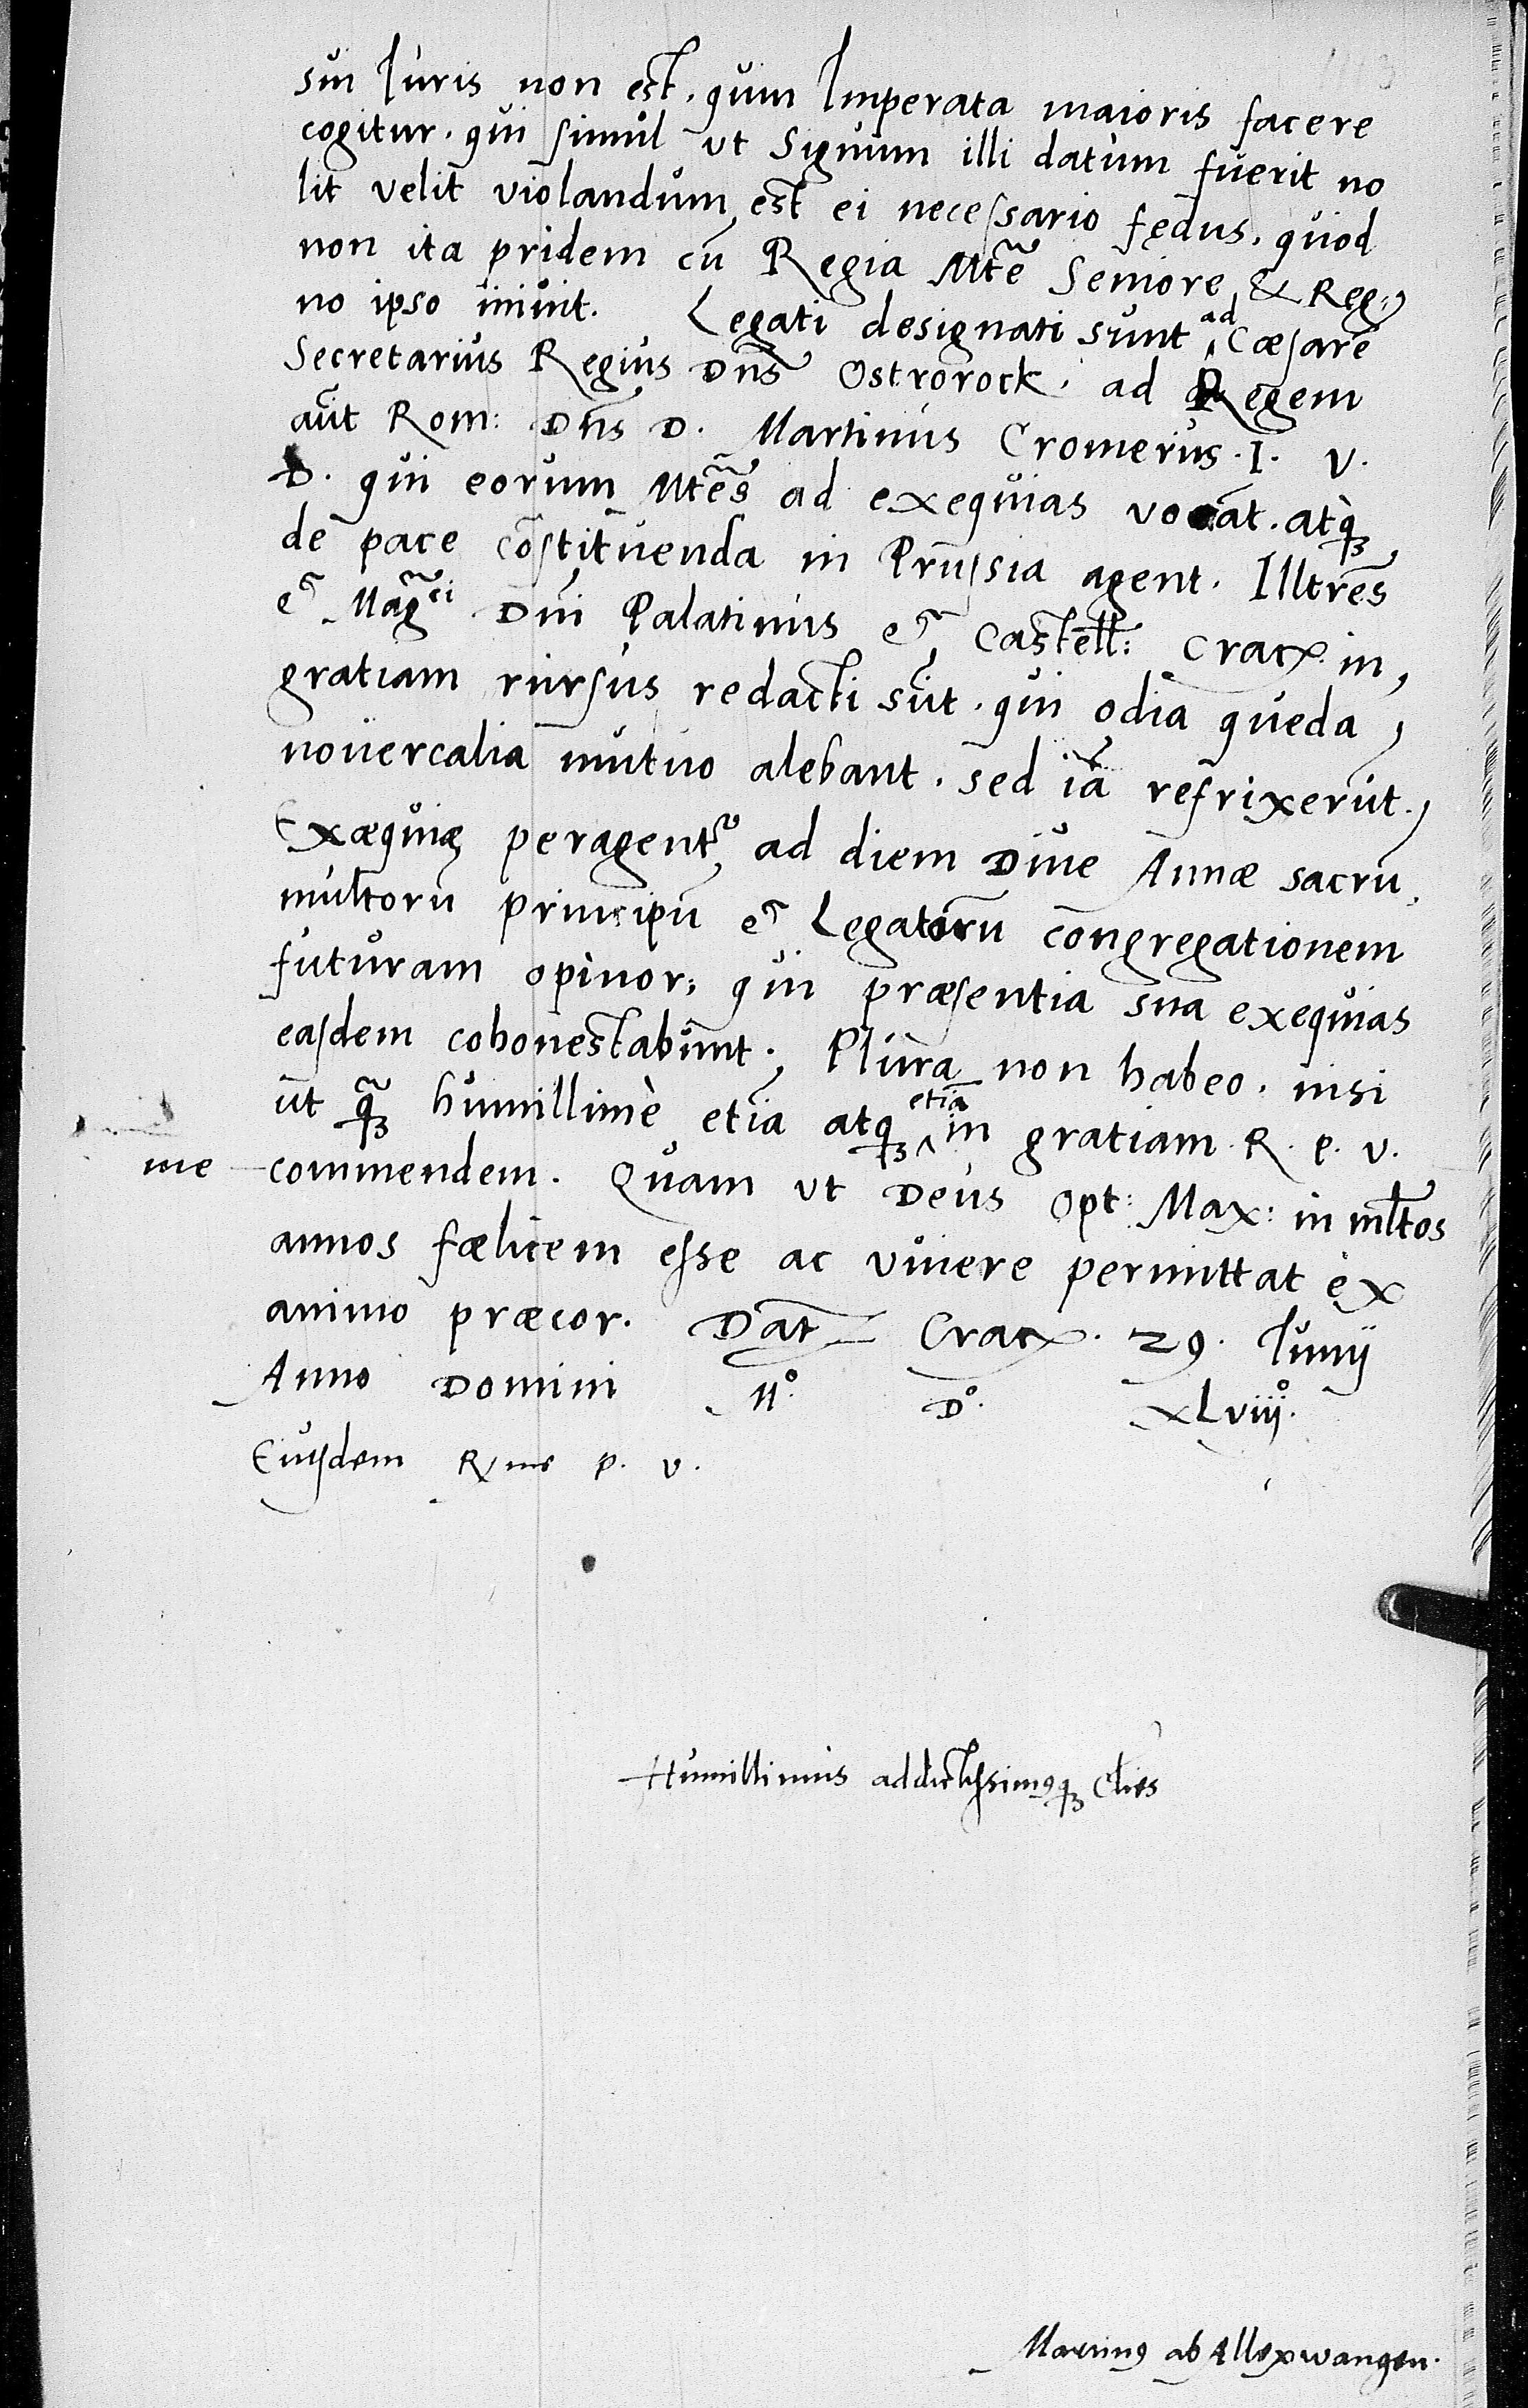 sui Iuris non est. quin Imperata maioris facere
cogitur. qui simul ut Signum illi datum fuerit no
lit velit violandum est ei necessario fędus, quod
non ita pridem cū Regia Mte Seniore & Reg=
no ipso iniuit. Legati designati sunt ad Cæsarē
Secretarius Regius Dns Ostrorock. ad Regem
aūt Rom: Dns D. Martinus Cromerus. I. V.
D. qui eorum Mtes ad exequias vocat. atq
de pace cōstituenda in Prussia agent. Illtres
et Magci Dni Palatinus et Castell: Crac. in
gratiam rursus redacti sūt. qui odia quedā
nouercalia mutuo alebant. sed iā refrixerūt.
Exæquiæ peragentr ad diem Diue Annæ sacrū.
multorū principū et Legatorū congregationem
futuram opinor: qui præsentia sua exequias
easdem cohonestabunt. Plura non habeo. nisi
ut q humillimè etiā atq etiā in gratiam R. P. V.
me commendem. Quam ut Deus Opt: Max: in mltos
annos fælicem esse ac viuere permittat ex
animo præcor. Dat Crac. 29. Iunij
Anno Domini Mo. Do. xLviijo.
Eiusdem R me P. V.
Humillimus addictissimusq cliēs
Martinus ab Allexwangen.